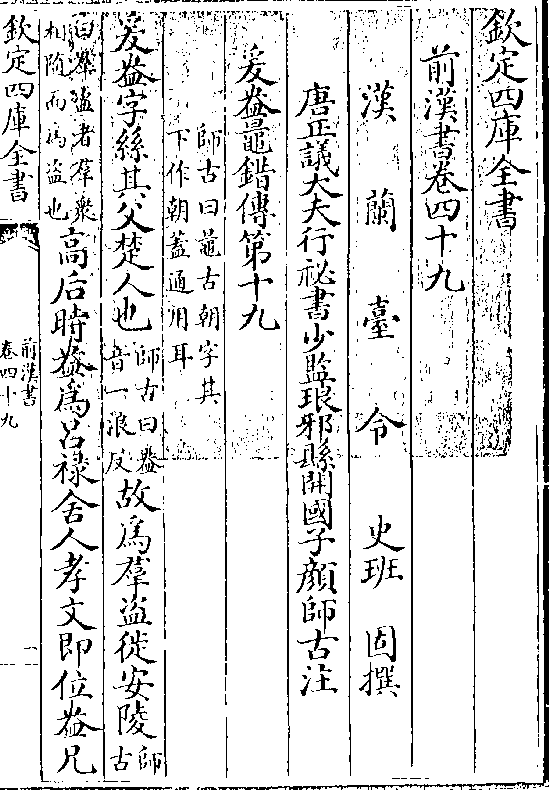 欽定四庫全書
前漢書卷四十九
漢蘭臺令史班固撰
唐正議大夫行祕書少監琅邪縣開國子顔師古注
爰盎鼂錯傳第十九
師古曰鼂古朝字其
下作朝蓋通用耳
爰盎字絲其父楚人也
師古曰盎
音一浪反
故爲羣盜徙安陵
師
古
曰羣盜者羣衆
相隨而爲盜也
高后時盎爲呂祿舍人孝文即位盎兄
欽定四庫全書
前漢書
卷四十九
一